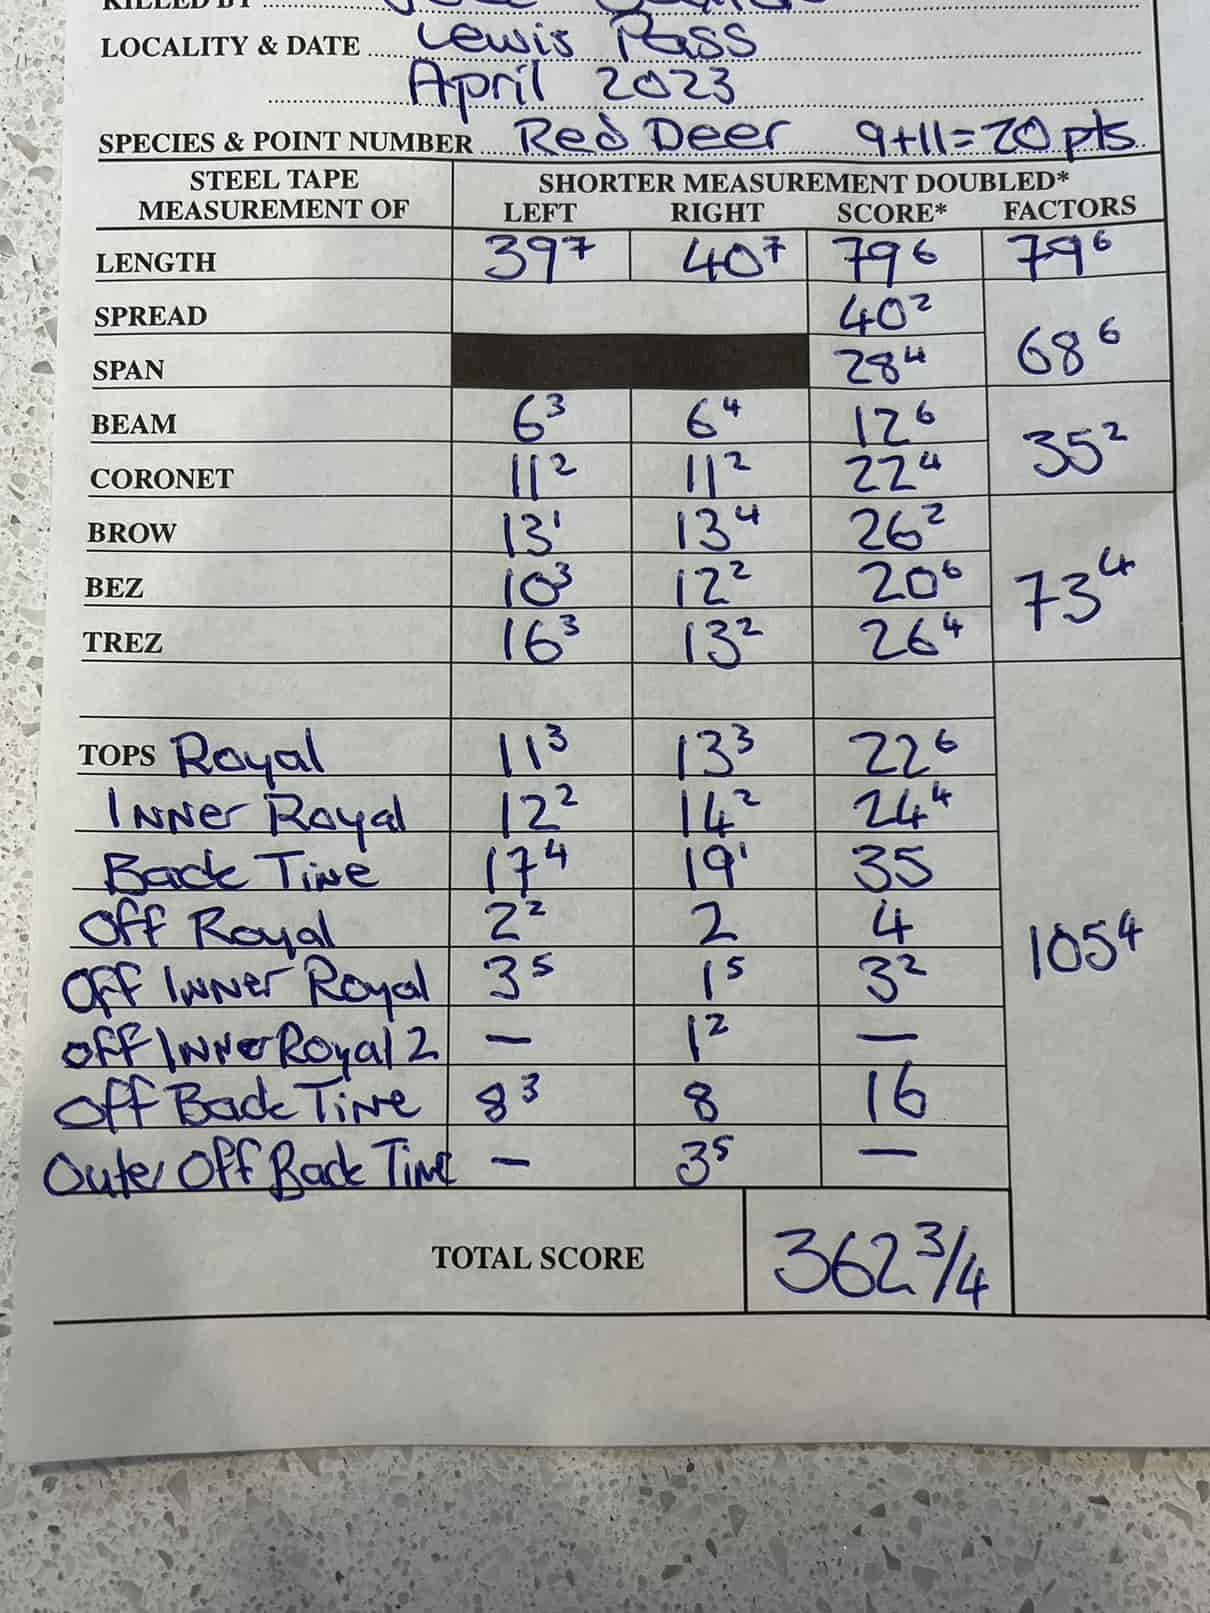 KILLED BY
LOCALITY & DATE Lewis Pass
April 2023
SPECIES & POINT NUMBER Red Deer 9+11=20 pts
STEEL TAPE MEASUREMENT OF
SHORTER MEASUREMENT DOUBLED*
LEFT RIGHT SCORE* FACTORS
LENGTH 39⁷ 40⁷ 79⁶ 79⁶
SPREAD 40²
68⁶
SPAN 28⁴
BEAM 6³ 6⁴ 12⁶
35²
CORONET 11² 11² 22⁴
BROW 13¹ 13⁴ 26²
BEZ 10³ 12² 20⁶ 73⁴
TREZ 16³ 13² 26⁴
TOPS Royal 11³ 13³ 22⁶
Inner Royal 12² 14² 24⁴
Back Tine 17⁴ 19¹ 35
Off Royal 2² 2 4 105⁴
Off Inner Royal 3⁵ 1⁵ 3²
Off Inner Royal 2 – 1² –
Off Back Tine 8³ 8 16
Outer Off Back Tine – 3⁵ –
TOTAL SCORE 362 3/4